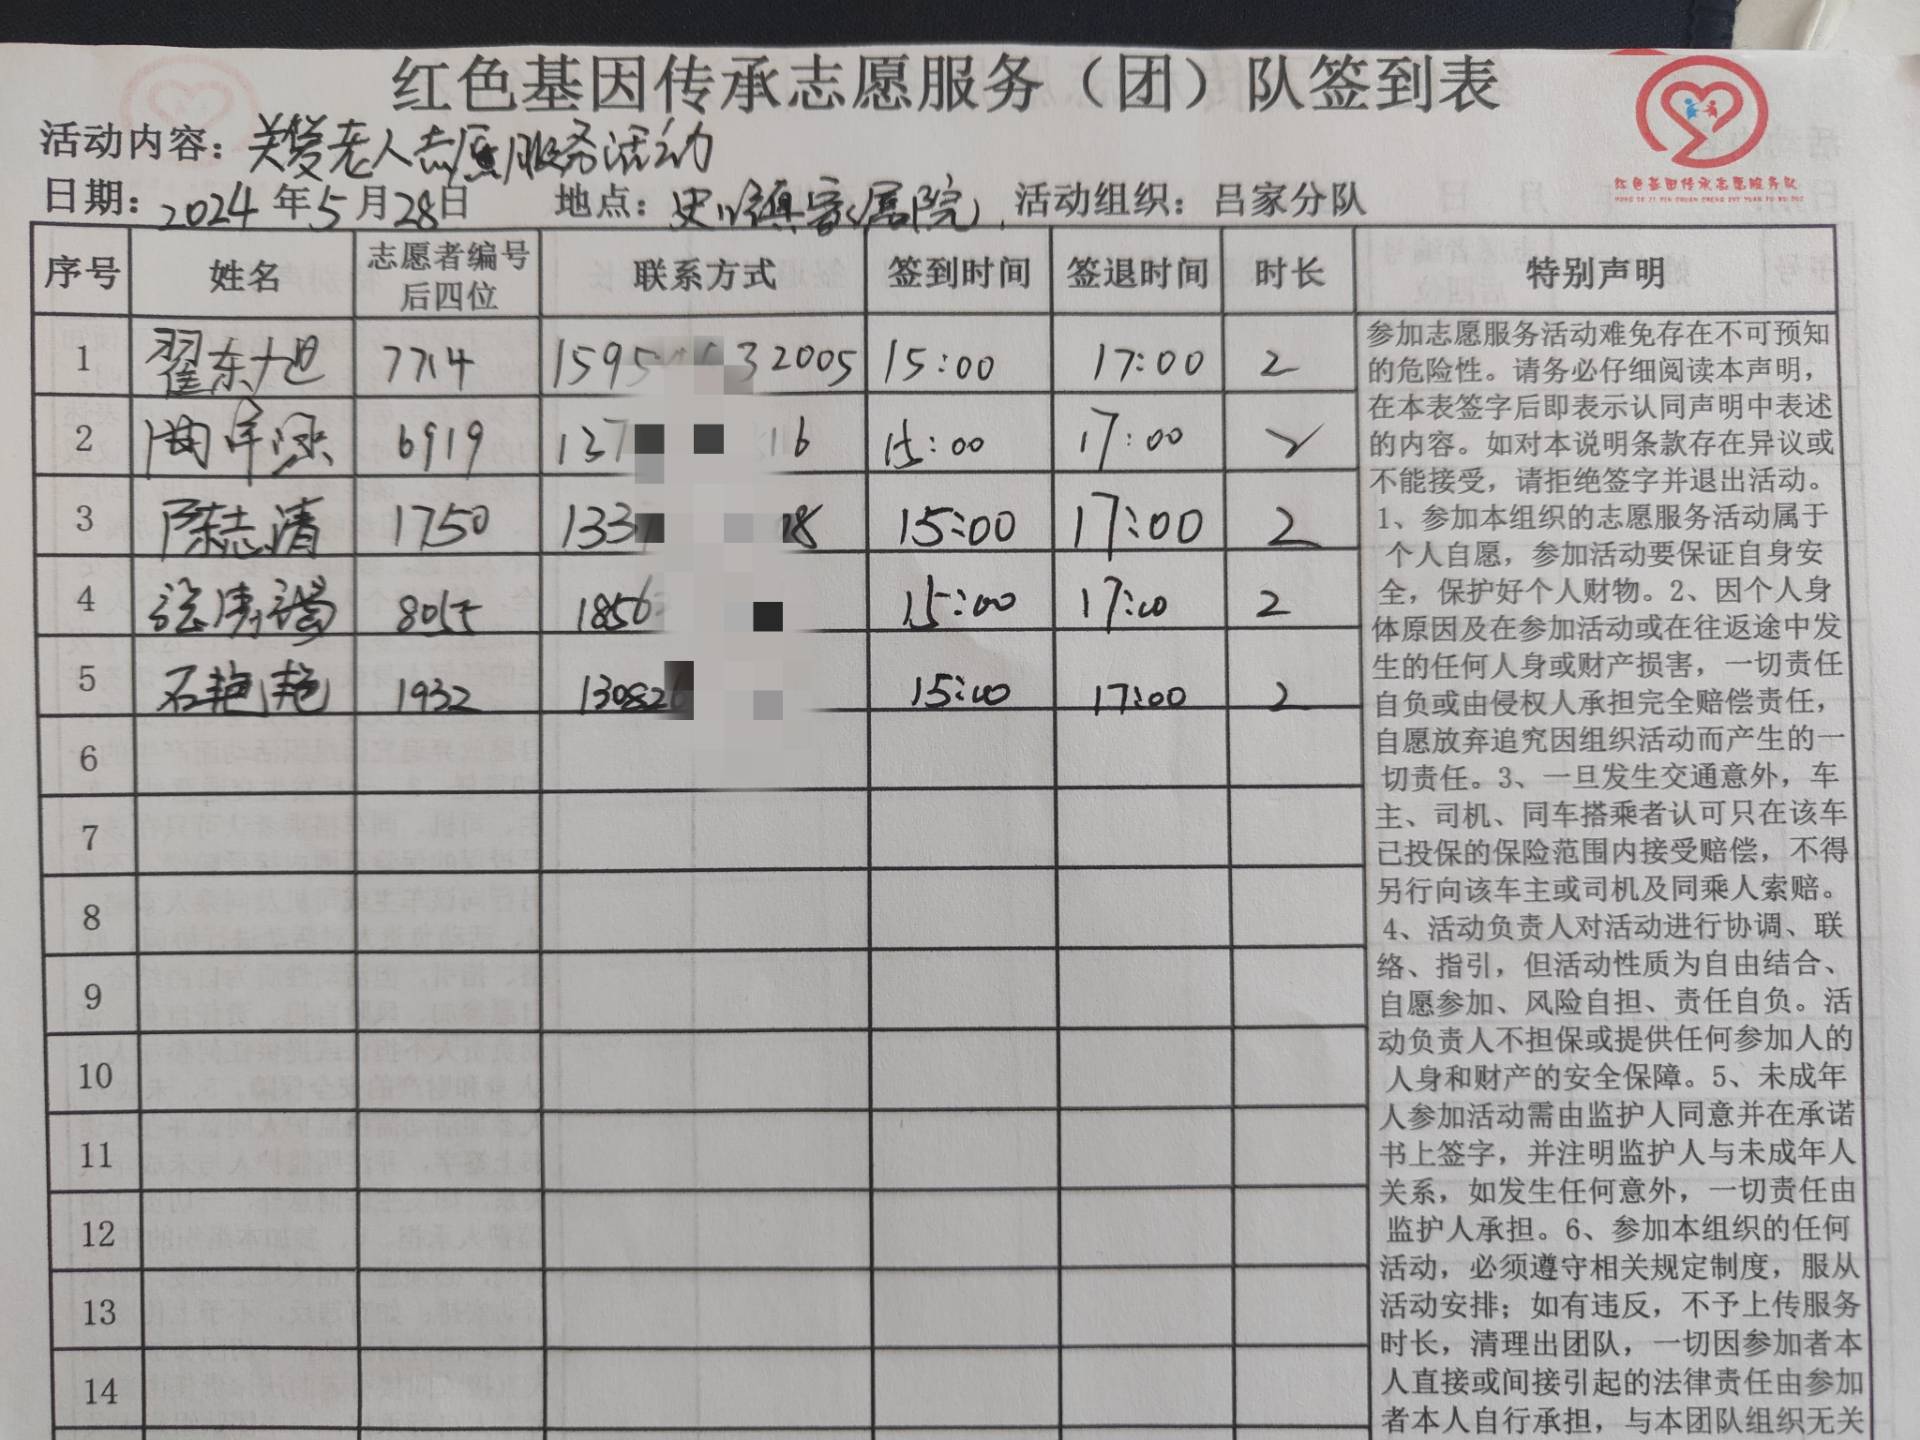 红色基因传承志愿服务（团）队签到表
活动内容：关爱老人志愿服务活动
日期：2024年5月28日 地点：史口镇家属院 活动组织：吕家分队
红色基因传承志愿服务队
序号 姓名 志愿者编号后四位 联系方式 签到时间 签退时间 时长 特别声明
1 翟东旭 7714 1595 32005 15:00 17:00 2
2 6919 137 16 15:00 17:00 2
3 陈志清 1750 133 18 15:00 17:00 2
4 8055 1856 15:00 17:00 2
5 石艳艳 1932 130826 15:00 17:00 2
6
7
8
9
10
11
12
13
14
参加志愿服务活动难免存在不可预知
的危险性。请务必仔细阅读本声明，
在本表签字后即表示认同声明中表述
的内容。如对本说明条款存在异议或
不能接受，请拒绝签字并退出活动。
1、参加本组织的志愿服务活动属于
个人自愿，参加活动要保证自身安
全，保护好个人财物。2、因个人身
体原因及在参加活动或在往返途中发
生的任何人身或财产损害，一切责任
自负或由侵权人承担完全赔偿责任，
自愿放弃追究因组织活动而产生的一
切责任。3、一旦发生交通意外，车
主、司机、同车搭乘者认可只在该车
已投保的保险范围内接受赔偿，不得
另行向该车主或司机及同乘人索赔。
4、活动负责人对活动进行协调、联
络、指引，但活动性质为自由结合、
自愿参加、风险自担、责任自负。活
动负责人不担保或提供任何参加人的
人身和财产的安全保障。5、未成年
人参加活动需由监护人同意并在承诺
书上签字，并注明监护人与未成年人
关系，如发生任何意外，一切责任由
监护人承担。6、参加本组织的任何
活动，必须遵守相关规定制度，服从
活动安排；如有违反，不予上传服务
时长，清理出团队，一切因参加者本
人直接或间接引起的法律责任由参加
者本人自行承担，与本团队组织无关